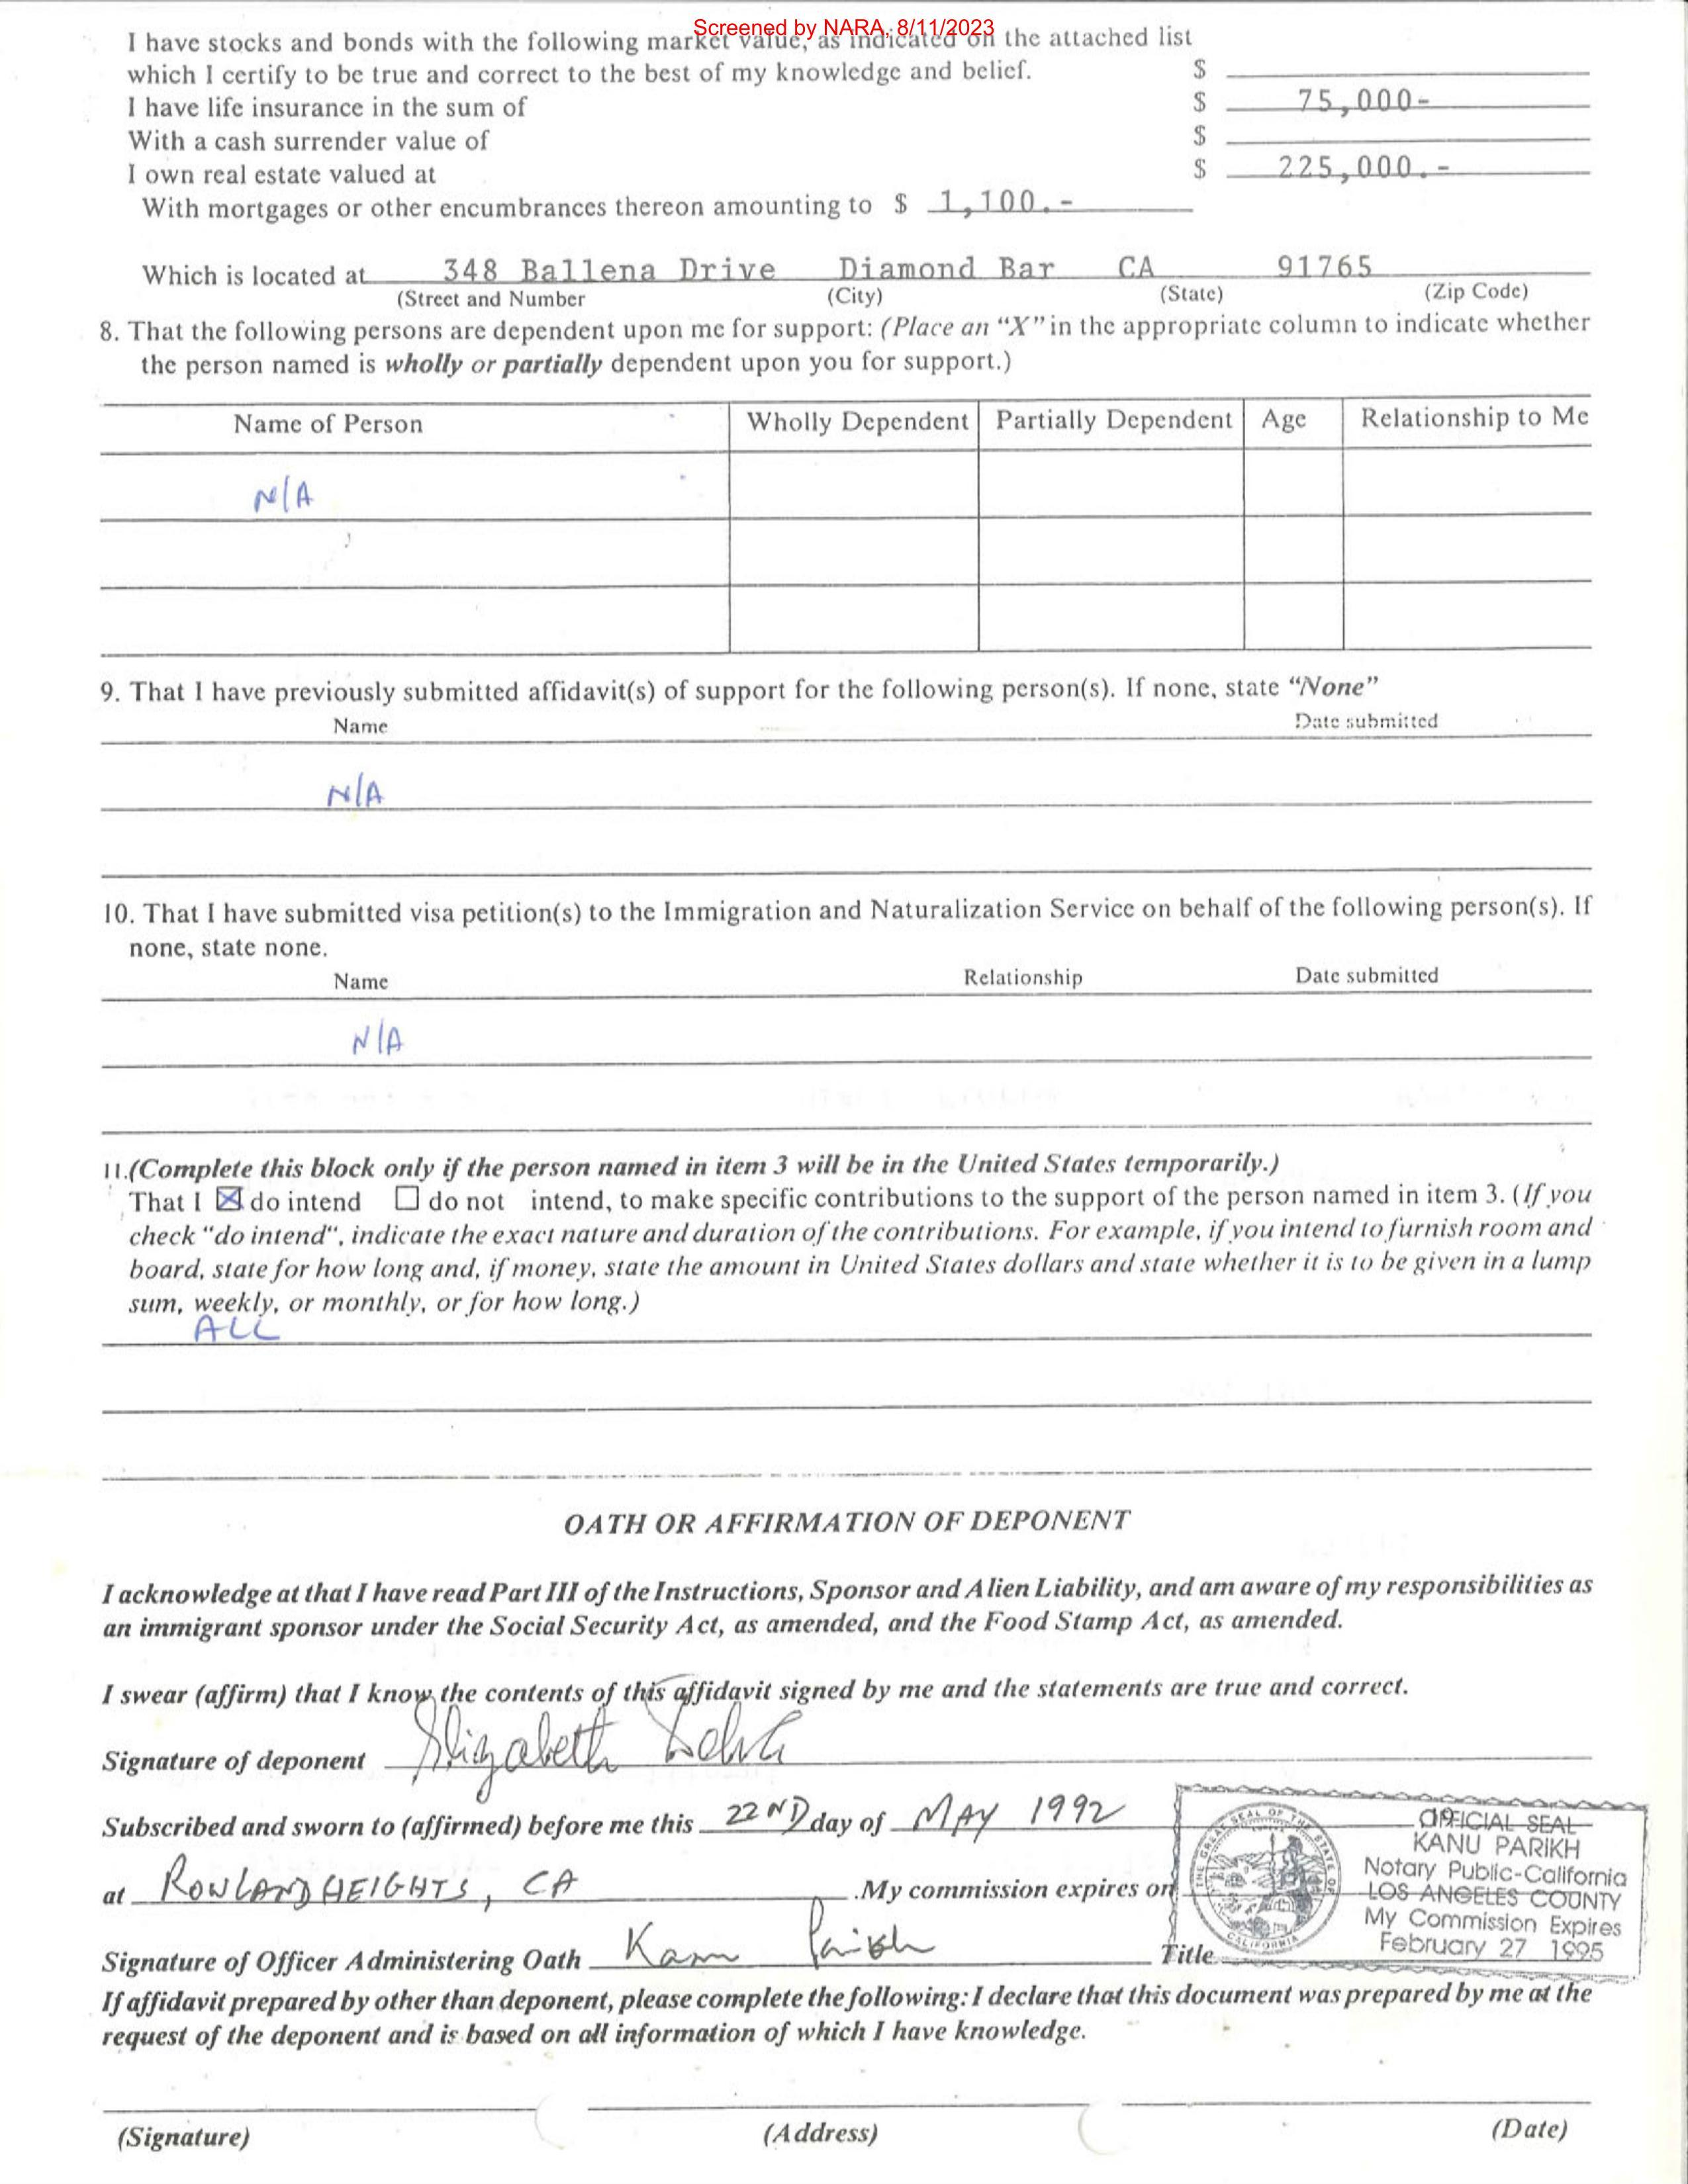 Screened by NARA, 8/11/2023
I have stocks and bonds with the following market value, as indicated on the attached list
which I certify to be true and correct to the best of my knowledge and belief. $
I have life insurance in the sum of $ 75,000-
With a cash surrender value of $
I own real estate valued at $ 225,000.-
With mortgages or other encumbrances thereon amounting to $ 1,100.-
Which is located at 348 Ballena Drive Diamond Bar CA 91765
(Street and Number (City) (State) (Zip Code)
8. That the following persons are dependent upon me for support: (Place an “X” in the appropriate column to indicate whether
the person named is wholly or partially dependent upon you for support.)
Name of Person Wholly Dependent Partially Dependent Age Relationship to Me
N/A
9. That I have previously submitted affidavit(s) of support for the following person(s). If none, state “None”
Name Date submitted
N/A
10. That I have submitted visa petition(s) to the Immigration and Naturalization Service on behalf of the following person(s). If
none, state none.
Name Relationship Date submitted
N/A
11.(Complete this block only if the person named in item 3 will be in the United States temporarily.)
That I ☒ do intend ☐ do not intend, to make specific contributions to the support of the person named in item 3. (If you
check "do intend", indicate the exact nature and duration of the contributions. For example, if you intend to furnish room and
board, state for how long and, if money, state the amount in United States dollars and state whether it is to be given in a lump
sum, weekly, or monthly, or for how long.)
ALL
OATH OR AFFIRMATION OF DEPONENT
I acknowledge at that I have read Part III of the Instructions, Sponsor and Alien Liability, and am aware of my responsibilities as
an immigrant sponsor under the Social Security Act, as amended, and the Food Stamp Act, as amended.
I swear (affirm) that I know the contents of this affidavit signed by me and the statements are true and correct.
Signature of deponent Elizabeth
Subscribed and sworn to (affirmed) before me this 22ND day of MAY 1992
at ROWLAND HEIGHTS, CA .My commission expires on
OFFICIAL SEAL
KANU PARIKH
Notary Public-California
LOS ANGELES COUNTY
My Commission Expires
February 27 1995
THE GREAT SEAL OF THE STATE OF CALIFORNIA
Signature of Officer Administering Oath Kanu Parikh Title
If affidavit prepared by other than deponent, please complete the following: I declare that this document was prepared by me at the
request of the deponent and is based on all information of which I have knowledge.
(Signature) (Address) (Date)